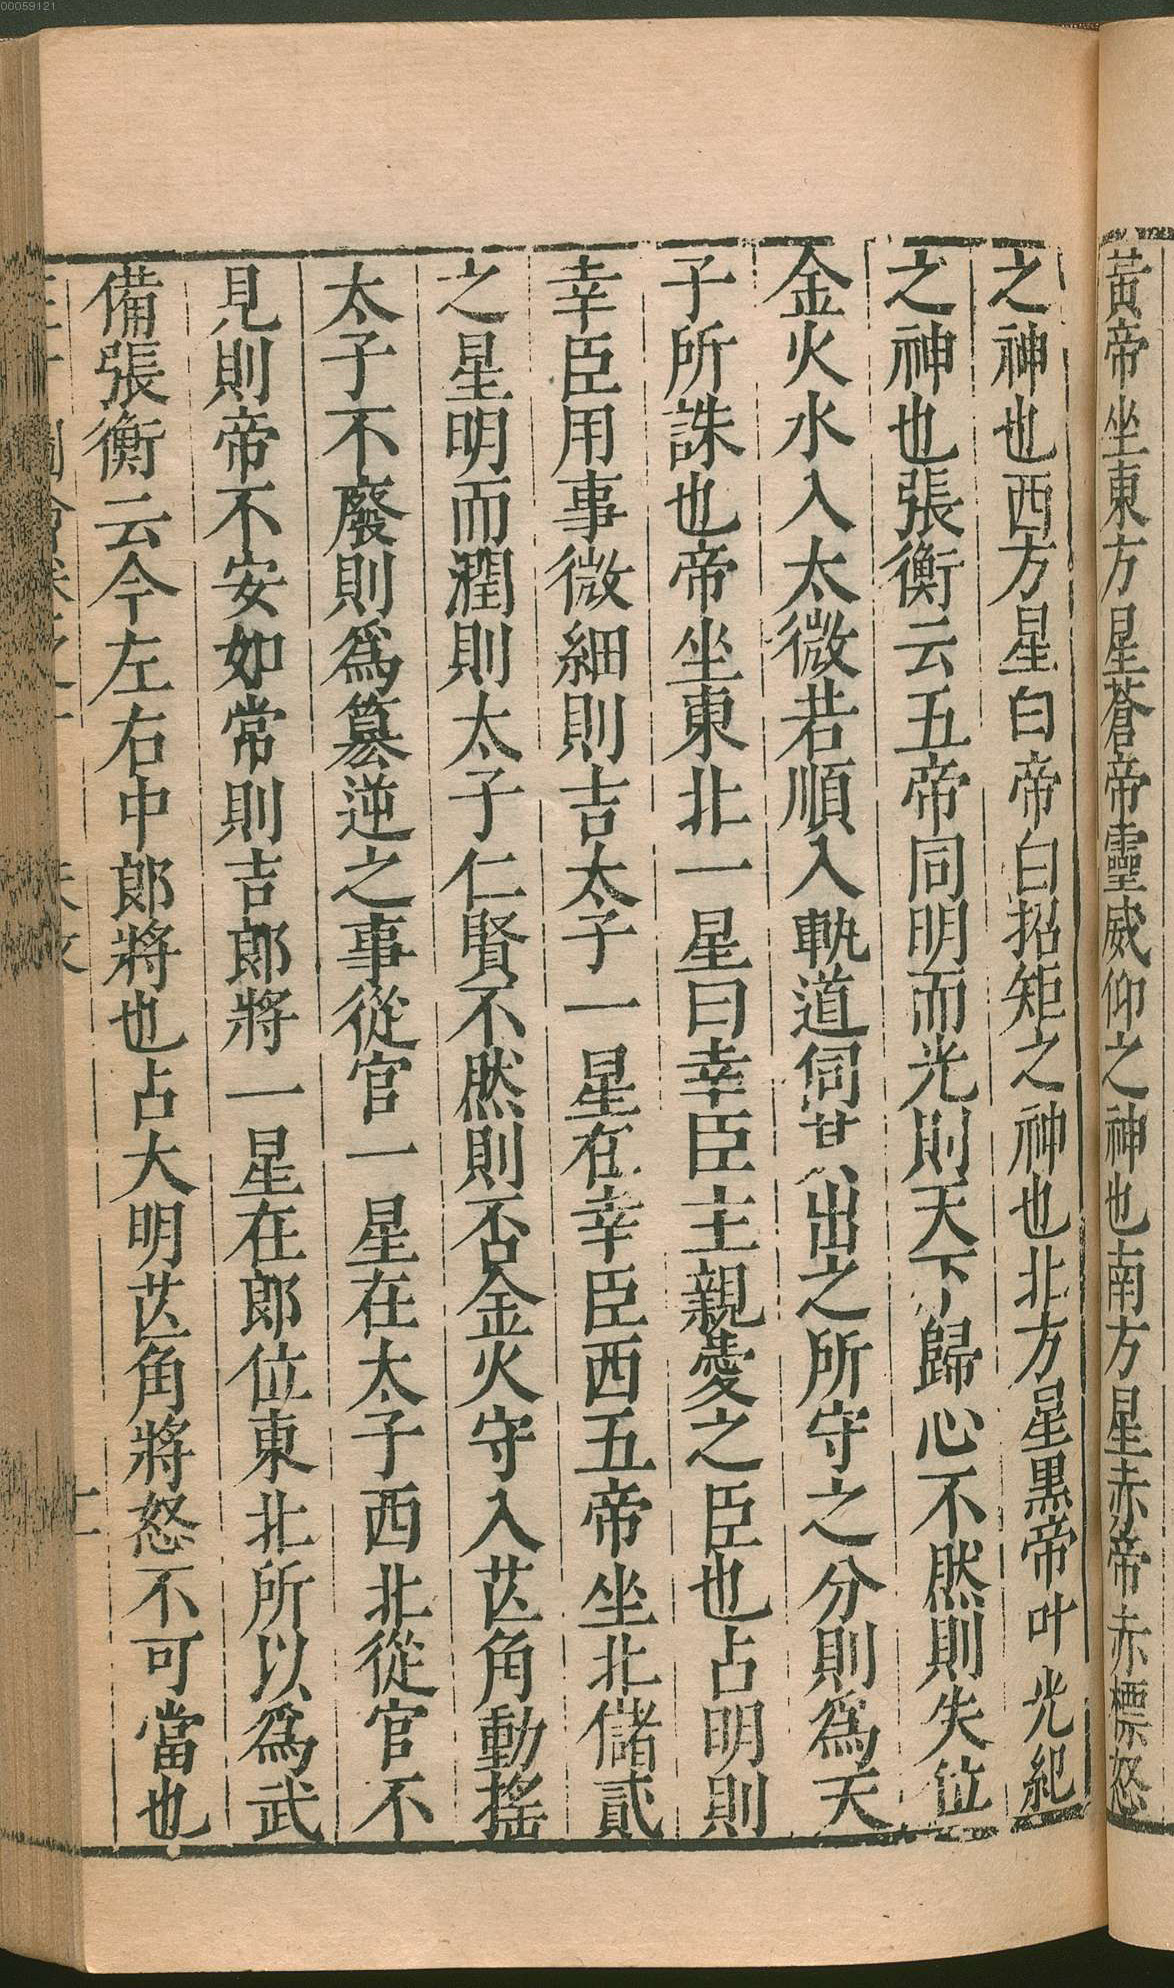 00059121
黃帝坐東方星蒼帝靈威仰之神也南方星赤帝赤標怒
之神也西方星白帝白招矩之神也北方星黒帝叶光紀
之神也張衡云五帝同明而光則天下歸心不然則失位
金火水入太微若順入軌道伺其出之所守之分則爲天
子所誅也帝坐東北一星曰幸臣主親愛之臣也占明則
幸臣用事微細則吉太子一星在幸臣西五帝坐北儲貳
之星明而潤則太子仁賢不然則否金火守入芒角動搖
太子不廢則爲簒逆之事從官一星在太子西北從官不
見則帝不安如常則吉郎將一星在郎位東北所以爲武
備張衡云今左右中郎將也占大明芒角將怒不可當也